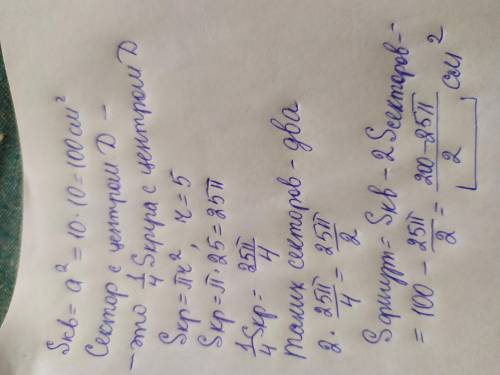 Sкв = a² = 10 · 10 = 100 см²
Сектор с центром Д –
– это 1/4 Sкруга с центром Д
Sкр = πr², r = 5
Sкр = π · 25 = 25π
1/4 Sкр = 25π/4
таких секторов – два
2 · 25π/4 = 25π/2
Sфигуры = Sкв – 2 Sсекторов =
= 100 – 25π/2 = 200 – 25π/2 см²